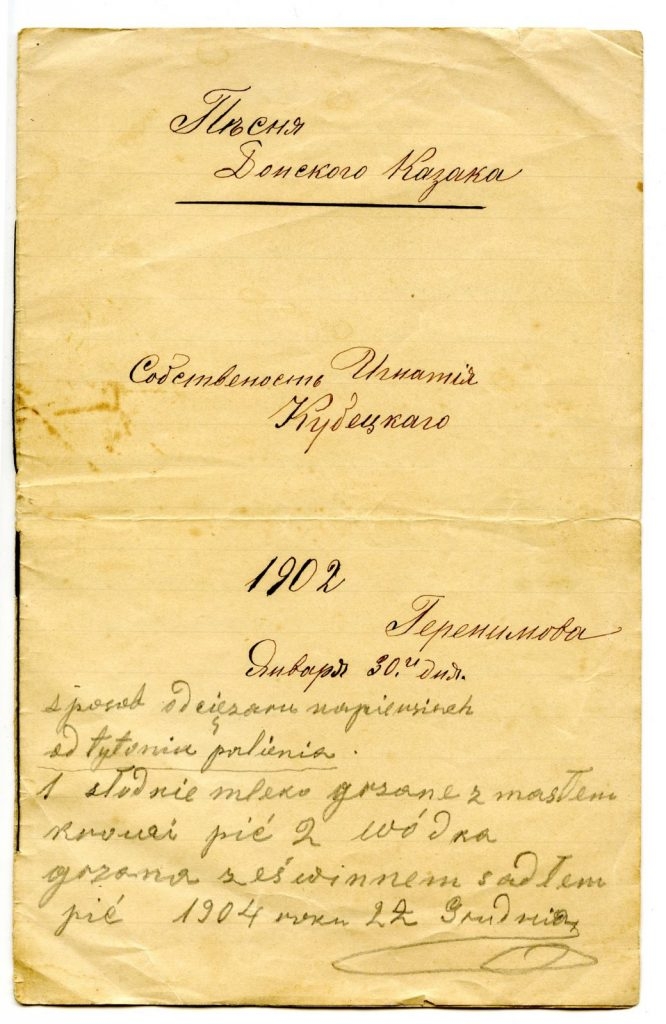 Пѣсня
Донского Казака
Собственость Игнатія
Кубецкаго
1902
Геренимова
Января 30.й дня.
sposob od ciężaru na piersiach
od tytoniu palienia.
1 słodnie mleko grzane z masłem
krowei pić 2 wódka
grzana ześwinnem sadłem
pić 1904 roku 22 Grudnia